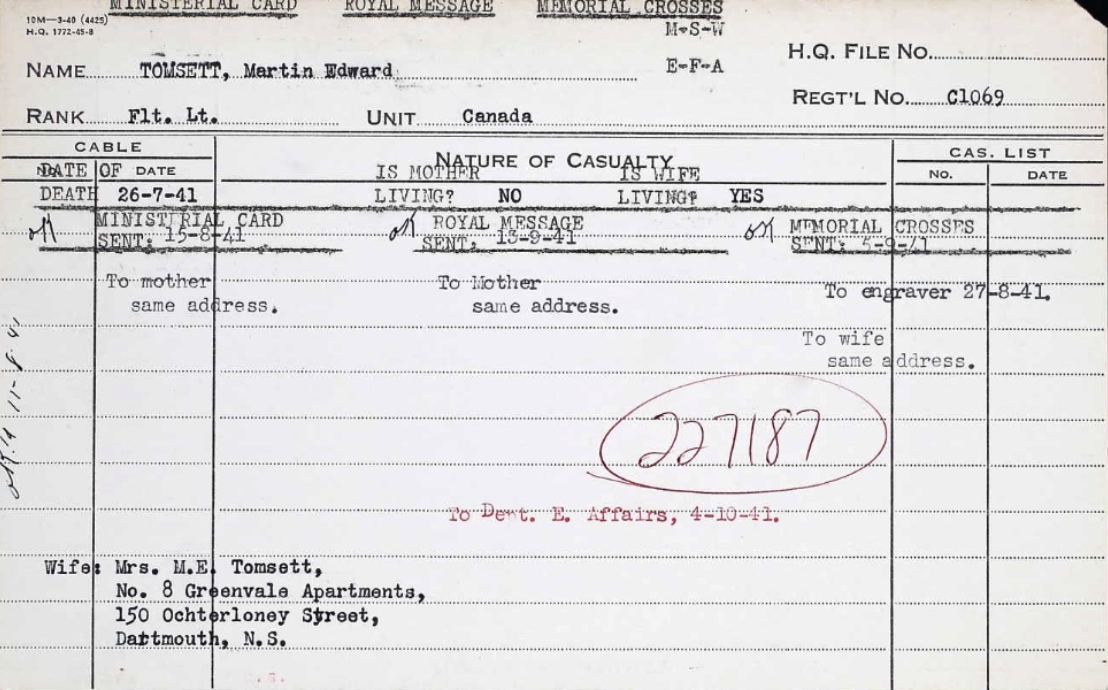 MINISTERIAL CARD ROYAL MESSAGE MEMORIAL CROSSES
10M—3-40 (4425)
H.Q. 1772-45-8
M-S-W
H.Q. FILE NO.
NAME TOMSETT, Martin Edward
E-F-A
REGT'L NO. C1069
RANK Flt. Lt. UNIT Canada
CABLE
NATURE OF CASUALTY
CAS. LIST
NO. DATE
IS MOTHER IS WIFE
NO. DATE
DATE OF
DEATH 26-7-41 LIVING? NO LIVING? YES
MINISTERIAL CARD ROYAL MESSAGE MEMORIAL CROSSES
SENT: 15-8-41 SENT. 13-9-41 SENT: 5-9-41
To mother To Mother
To engraver 27-8-41.
same address. same address.
To wife
same address.
11-8-41
227187
To Dept. E. Affairs, 4-10-41.
Wife: Mrs. M.E. Tomsett,
No. 8 Greenvale Apartments,
150 Ochterloney Street,
Dartmouth, N.S.